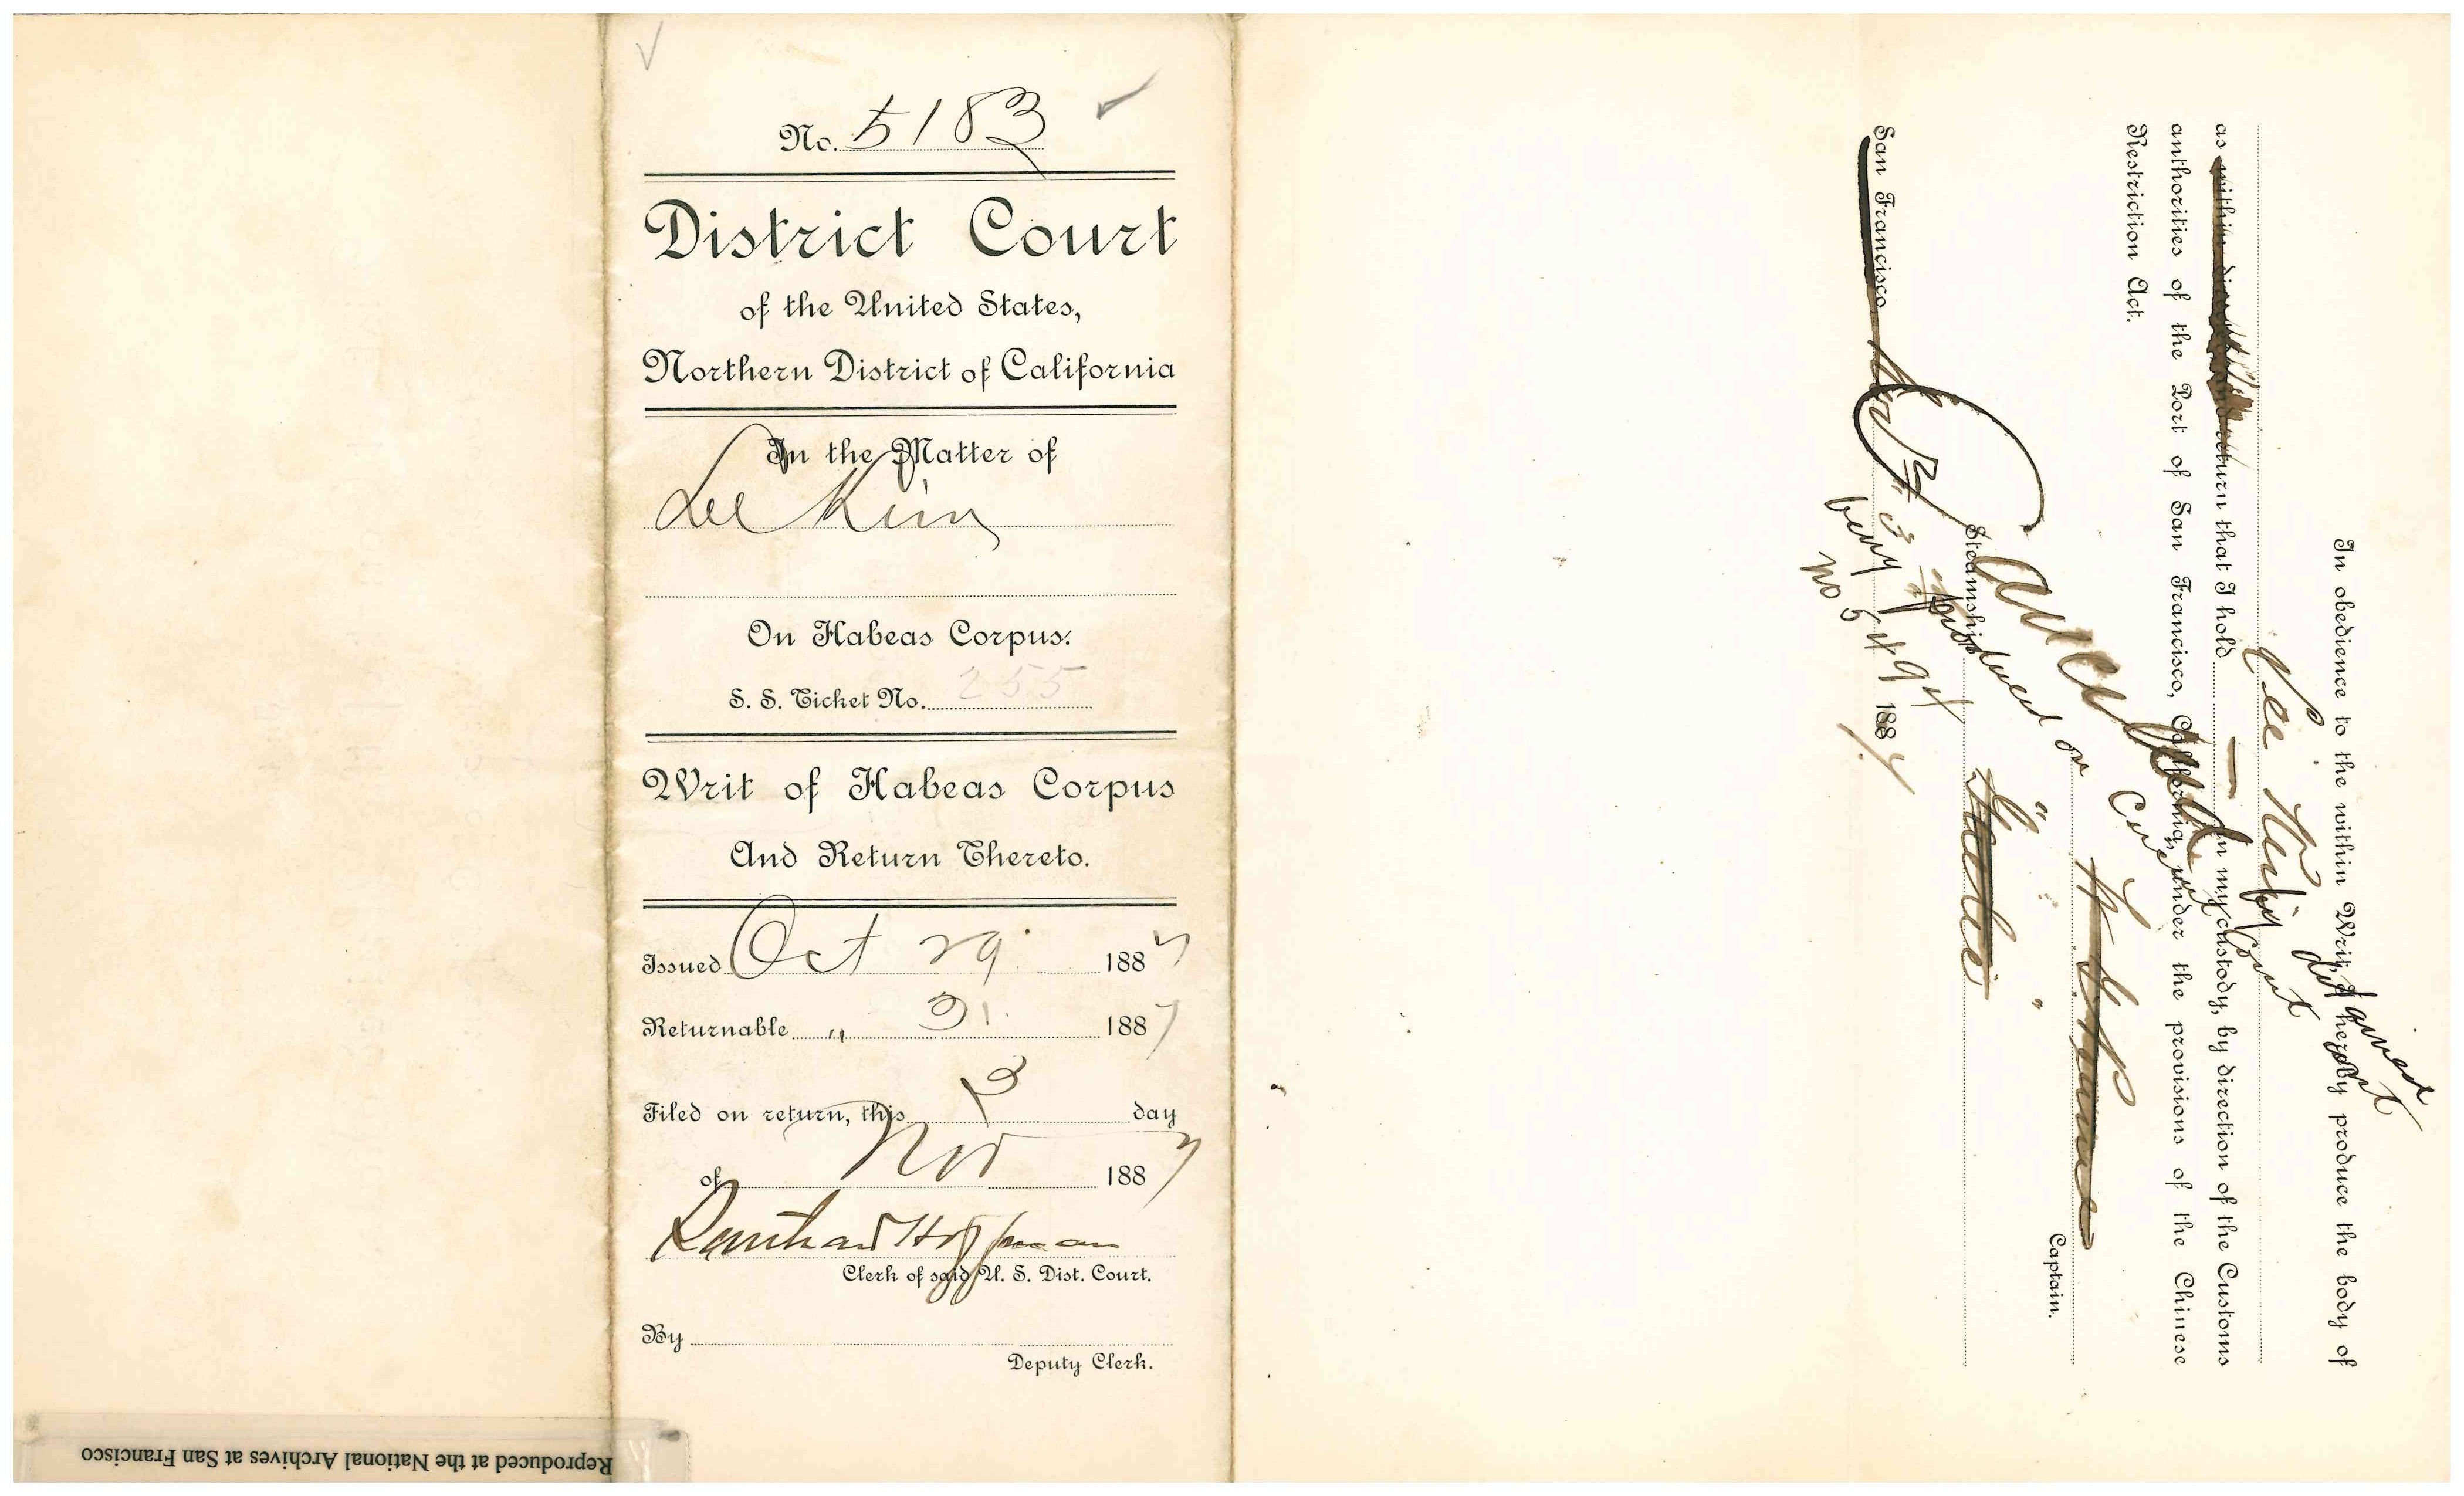 No. 5183
District Court
of the United States,
Northern District of California
In the Matter of
Lee Kim
On Habeas Corpus.
S. S. Ticket No. 255
Writ of Habeas Corpus
And Return Thereto.
Issued Oct 29 1887
Returnable " 31 1887
Filed on return, this 3 day
of Nov 1887
Hoffman
Clerk of said U. S. Dist. Court.
By
Deputy Clerk.
Reproduced at the National Archives at San Francisco
In obedience to the within Writ, I hereby produce the body of
Lee Kim
as within directed and return that I hold — in my custody, by direction of the Customs
authorities of the Port of San Francisco, California, under the provisions of the Chinese
Restriction Act.
Captain.
Steamship Gaelic
San Francisco, Nov 3 1887
Canceled
no 5494